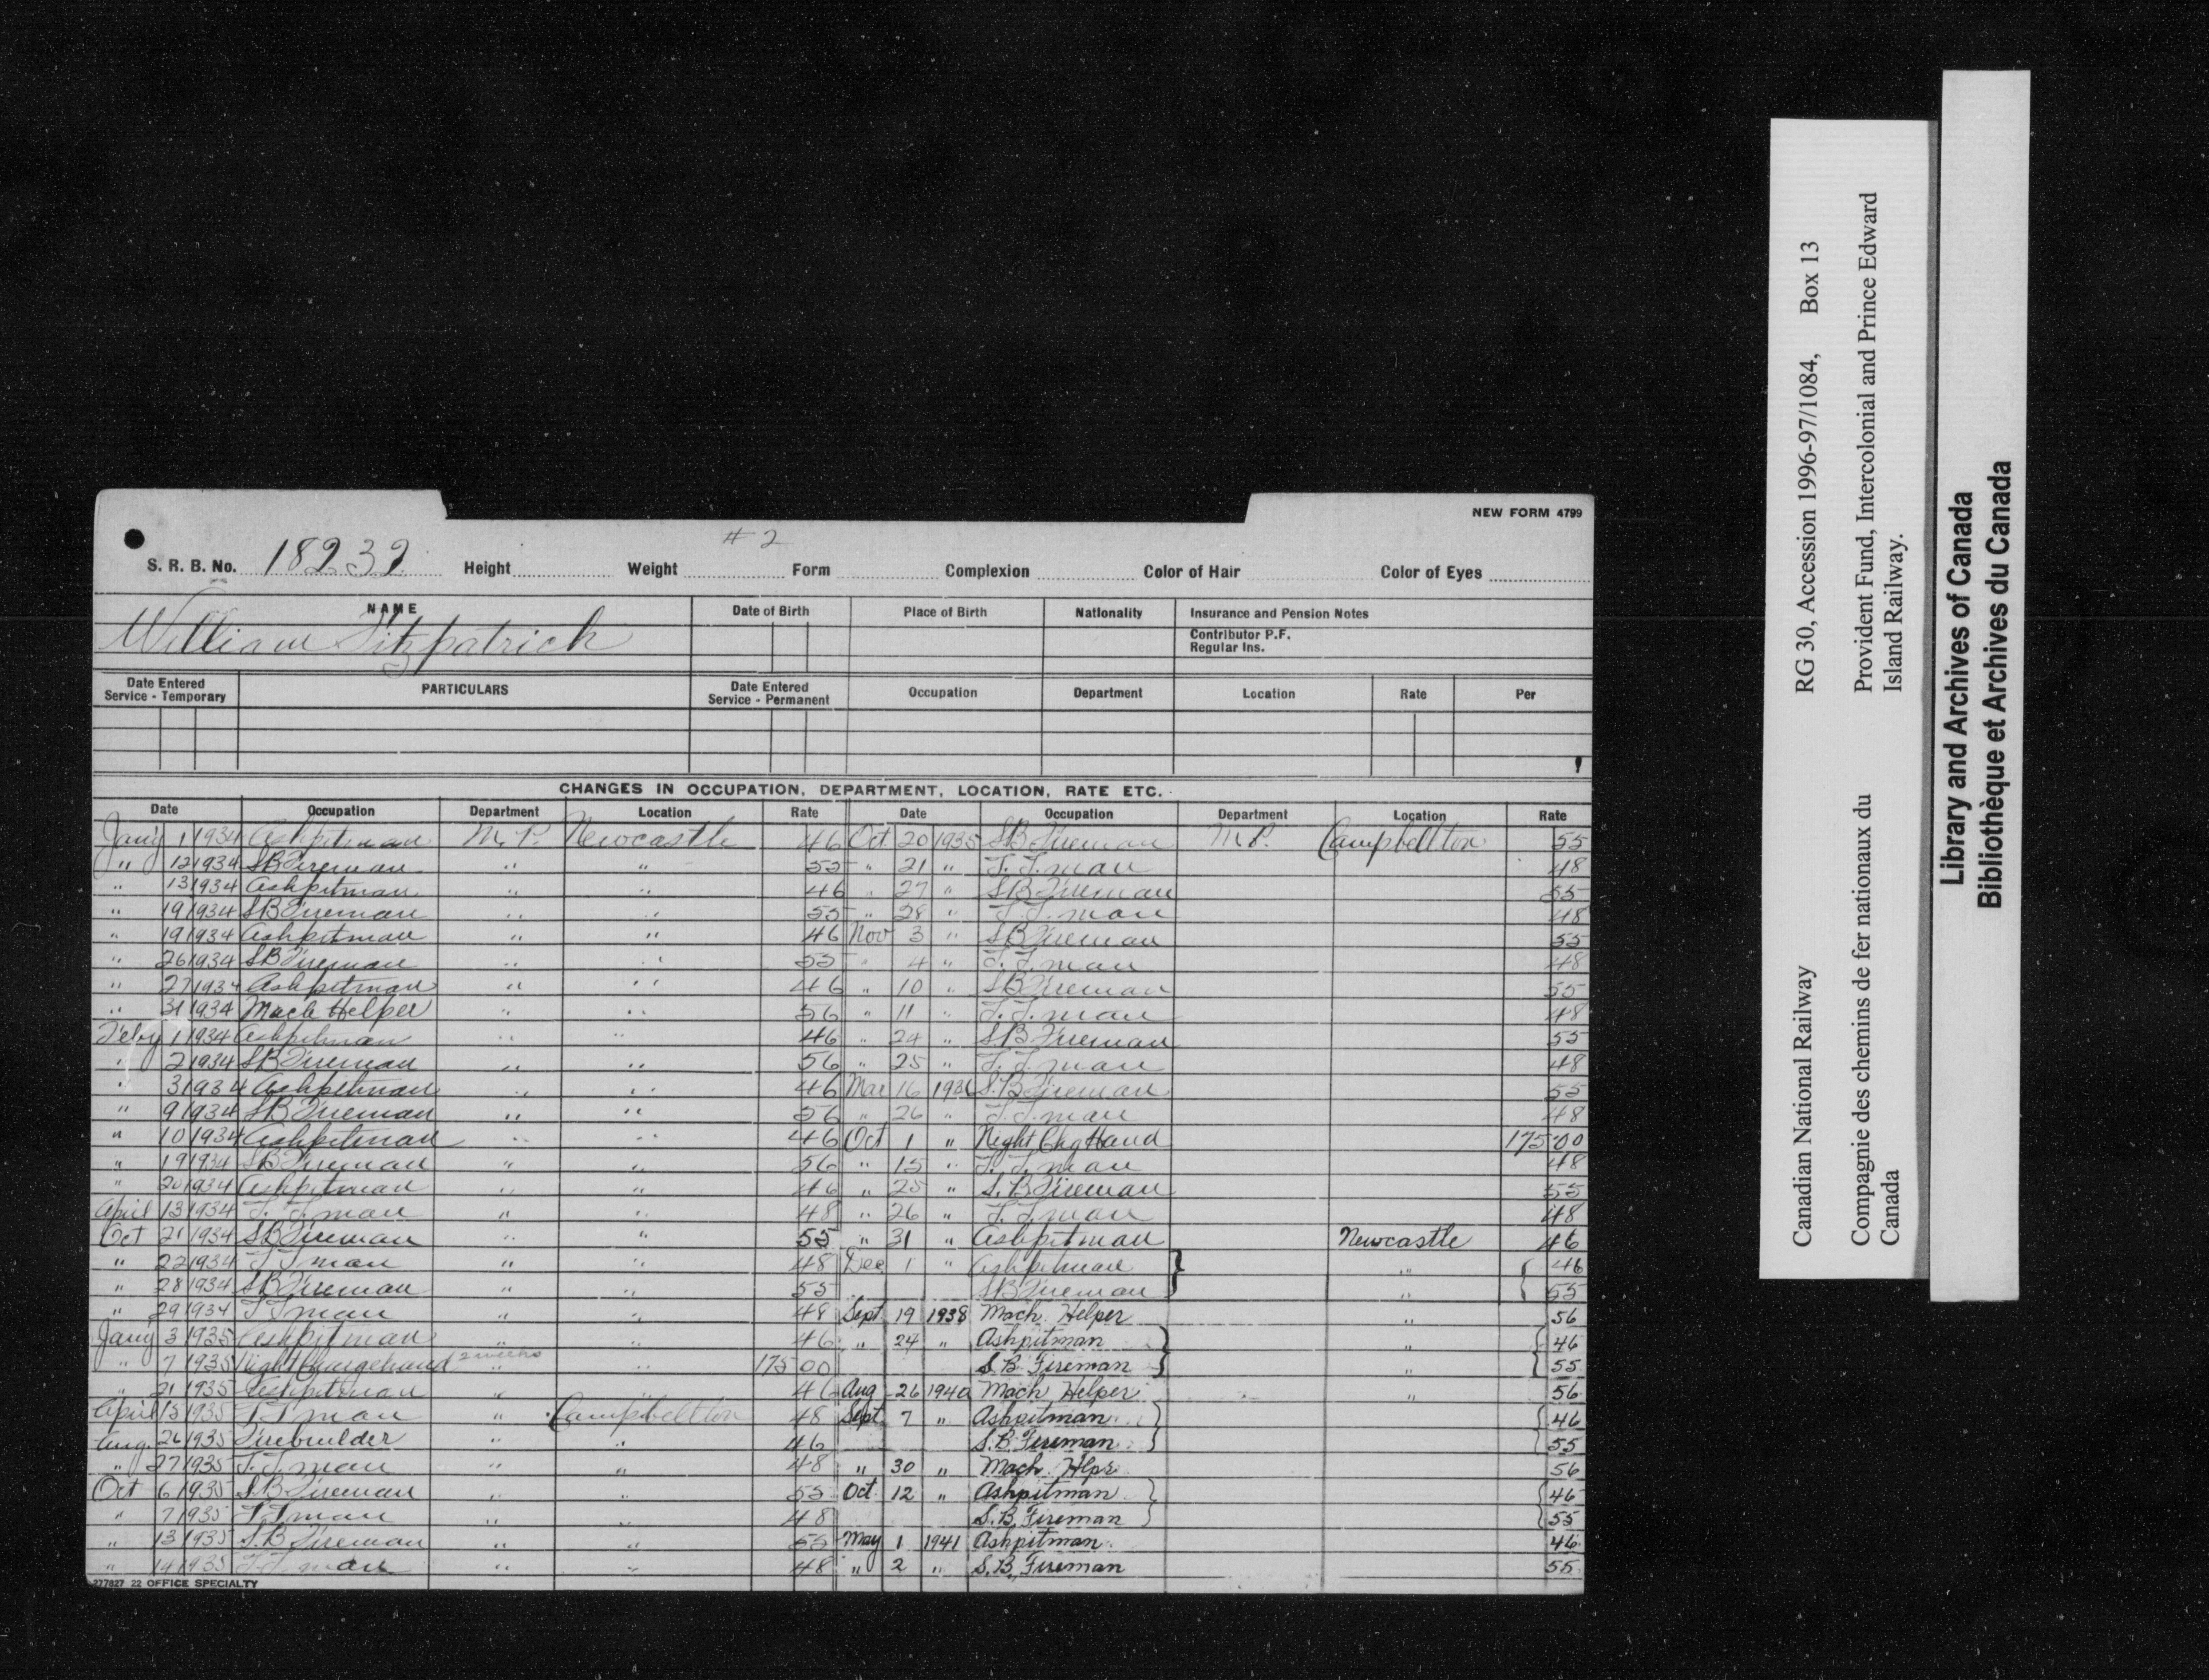 NEW FORM 4799
# 2
S. R. B. No. 18232 Height Weight Form Complexion Color of Hair Color of Eyes
NAME Date of Birth Place of Birth Nationality Insurance and Pension Notes
William Fitzpatrick
Contributor P.F.
Regular Ins.
Date Entered Service - Temporary PARTICULARS Date Entered Service - Permanent Occupation Department Location Rate Per
CHANGES IN OCCUPATION, DEPARTMENT, LOCATION, RATE ETC.
Date Occupation Department Location Rate Date Occupation Department Location Rate
Jany 1 1934 Ashpitman M. P. Newcastle 46 Oct 20 1935 SB Fireman M.P. Campbellton 55
" 12 1934 SB Fireman " " 55 " 21 " T. T. man 48
" 13 1934 Ashpitman " " 46 " 27 " SB Fireman 55
" 19 1934 SB Fireman " " 55 " 28 " T. T. man 48
" 19 1934 Ashpitman " " 46 Nov 3 " SB Fireman 55
" 26 1934 SB Fireman " " 55 " 4 " T. T. man 48
" 27 1934 Ashpitman " " 46 " 10 " SB Fireman 55
" 31 1934 Mach Helper " " 56 " 11 " T. T. man 48
Feby 1 1934 Ashpitman " " 46 " 24 " SB Fireman 55
" 2 1934 SB Fireman " " 56 " 25 " T. T. man 48
" 3 1934 Ashpitman " " 46 Mar 16 1936 S.B Fireman 55
" 9 1934 SB Fireman " " 56 " 26 " T. T. man 48
" 10 1934 Ashpitman " " 46 Oct 1 " Night Chg Hand 175 00
" 19 1934 SB Fireman " " 56 " 15 " T. T. man 48
" 20 1934 Ashpitman " " 46 " 25 " S. B Fireman 55
April 13 1934 T. T. man " " 48 " 26 " T. T. man 48
Oct 21 1934 SB Fireman " " 55 " 31 " Ashpitman Newcastle 46
" 22 1934 T T man " " 48 Dec 1 " Ashpitman } " { 46
" 28 1934 SB Fireman " " 55 SB Fireman } " { 55
" 29 1934 T T man " " 48 Sept 19 1938 Mach. Helper " 56
Jany 3 1935 Ashpitman " " 46 " 24 " Ashpitman } " { 46
" 7 1935 Night Chargehand 2 weeks " " 175 00 S B Fireman } " { 55
" 21 1935 Ashpitman " " 46 Aug 26 1940 Mach. Helper " " 56
April 15 1935 T T man " Campbellton 48 Sept 7 " Ashpitman } { 46
Aug. 26 1935 Firebuilder " " 46 S.B. Fireman } { 55
" 27 1935 T. T. man " " 48 " 30 " Mach. Hlpr 56
Oct 6 1935 S.B Fireman " " 55 Oct 12 " Ashpitman } { 46
" 7 1935 T T man " " 48 S.B. Fireman } { 55
" 13 1935 S.B Fireman " " 55 May 1 1941 Ashpitman 46
" 14 1935 T. T. man " " 48 " 2 " S.B. Fireman 55
277827 22 OFFICE SPECIALTY
Canadian National Railway RG 30, Accession 1996-97/1084, Box 13
Compagnie des chemins de fer nationaux du Canada
Provident Fund, Intercolonial and Prince Edward Island Railway.
Library and Archives of Canada
Bibliothèque et Archives du Canada